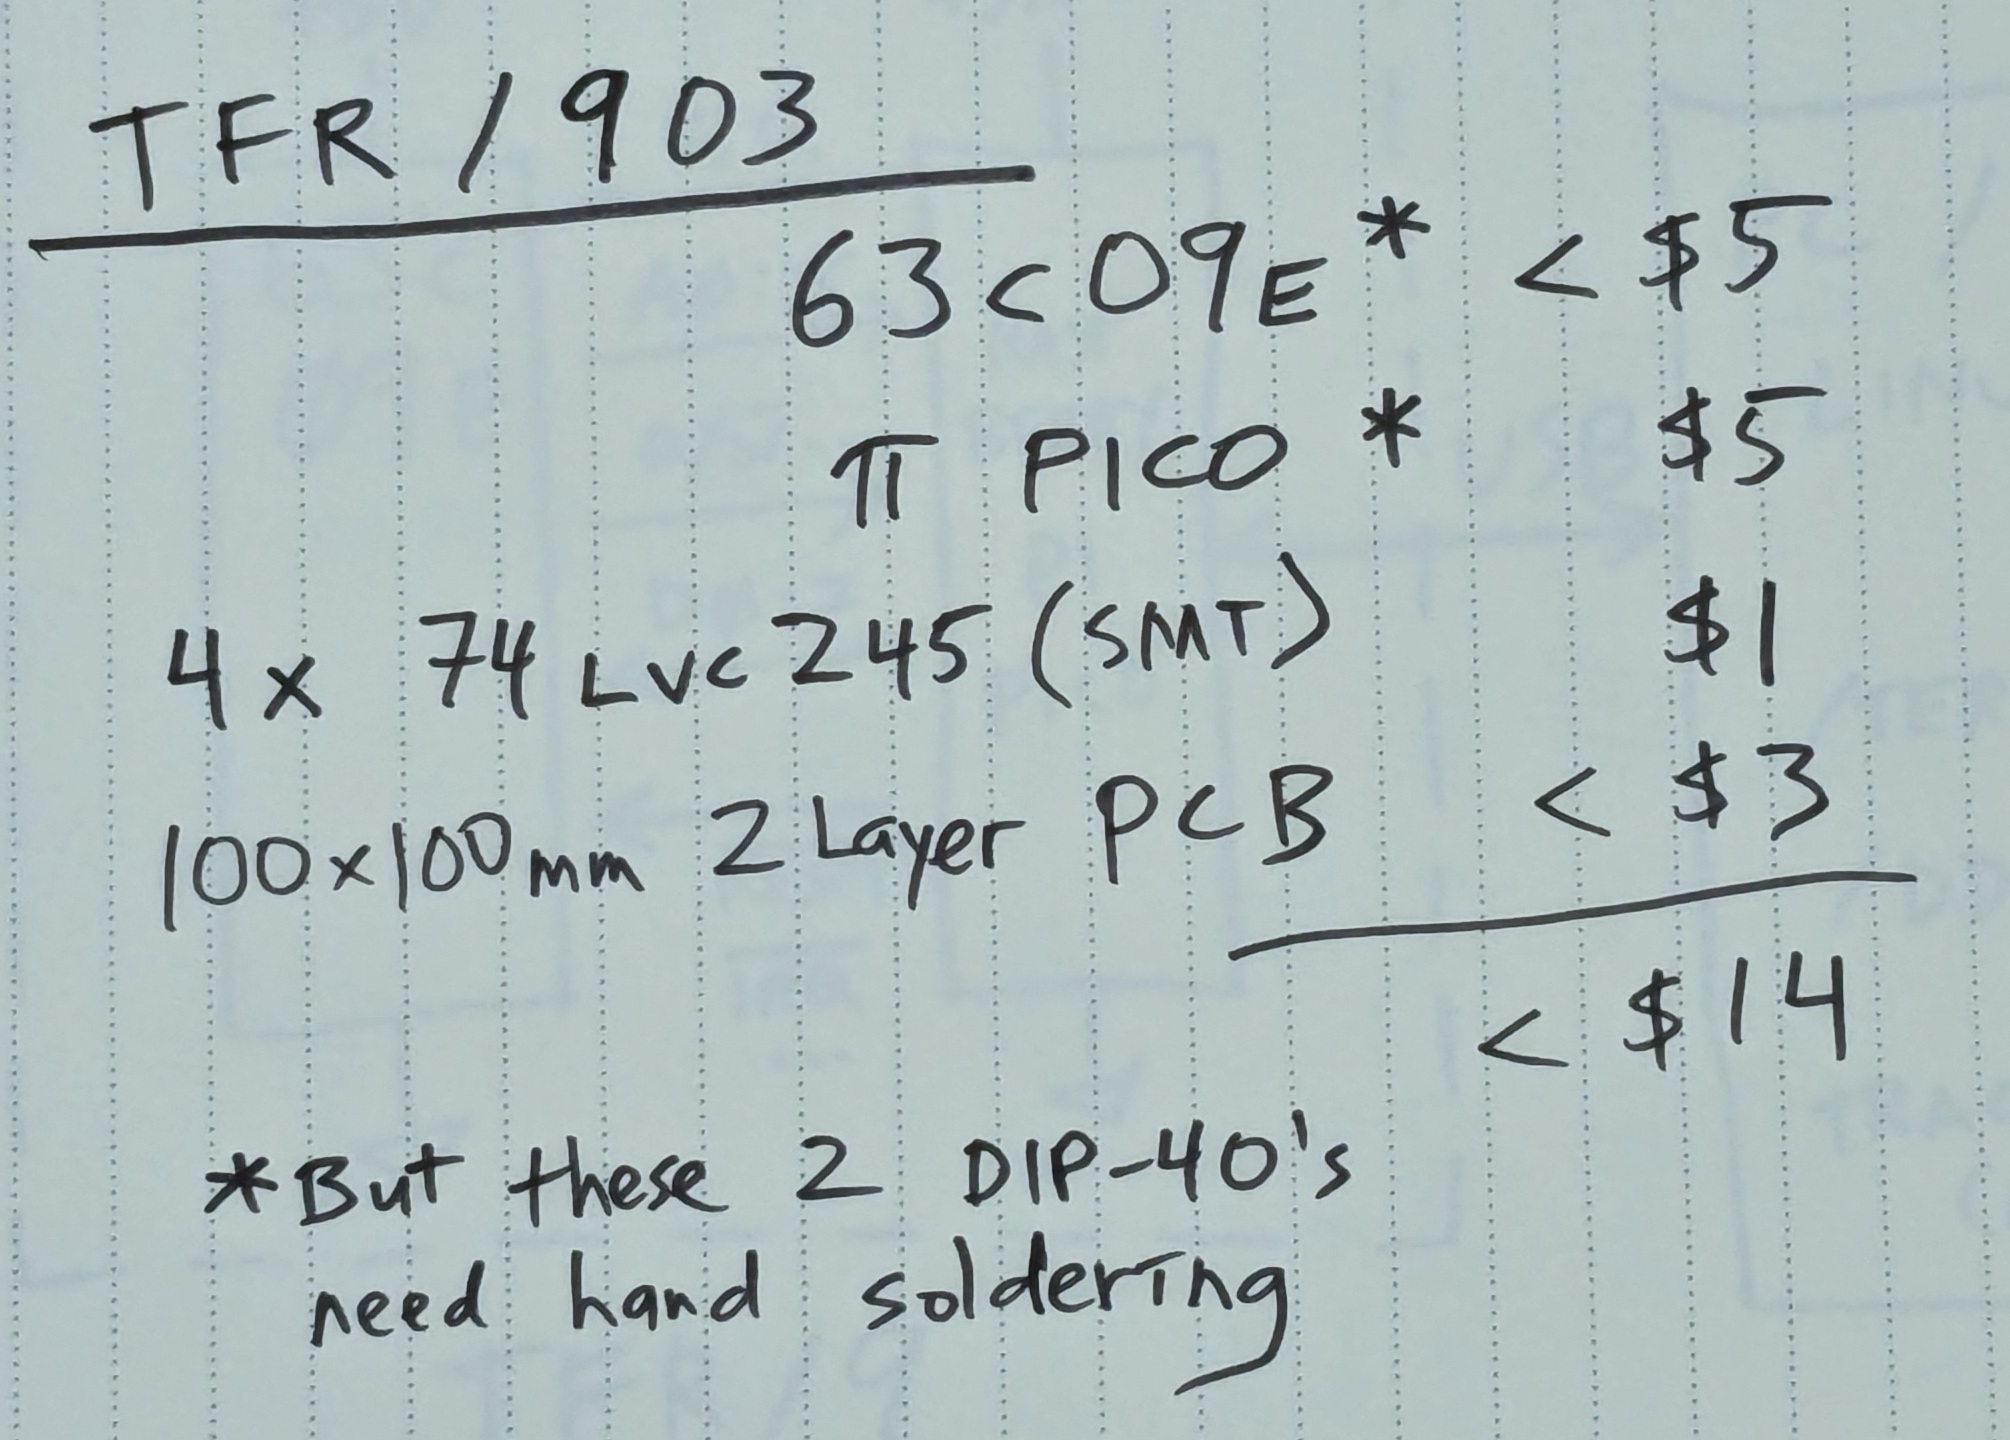 TFR / 903
63C09E* < $5
π PICO * $5
4x 74LVC245 (SMT) $1
100x100mm 2 Layer PCB < $3
< $14
*But these 2 DIP-40's
need hand soldering